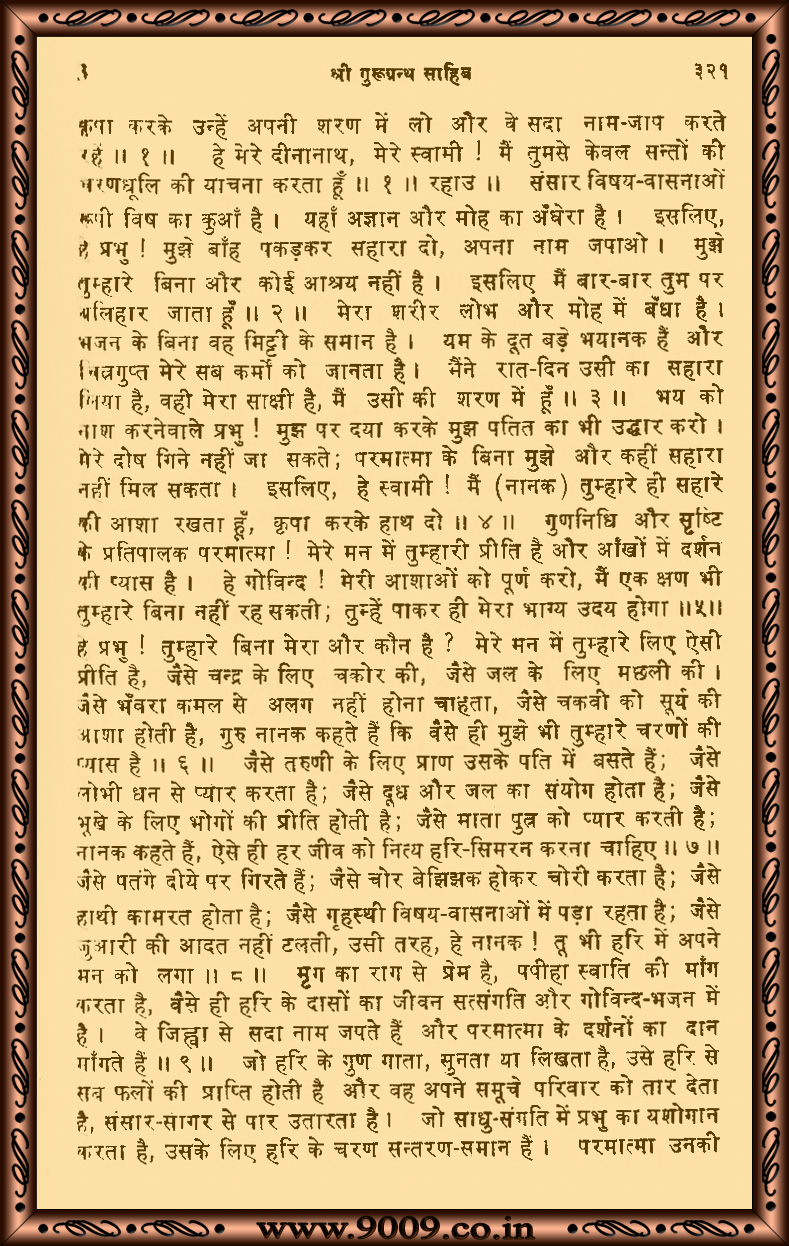 श्री गुरूग्रन्थ साहिब ३२१
कृपा करके उन्हें अपनी शरण में लो और वे सदा नाम-जाप करते
रहें ॥ १ ॥ हे मेरे दीनानाथ, मेरे स्वामी ! मैं तुमसे केवल सन्तों की
चरणधूलि की याचना करता हूँ ॥ १ ॥ रहाउ ॥ संसार विषय-वासनाओं
रूपी विष का कुआँ है । यहाँ अज्ञान और मोह का अँधेरा है । इसलिए,
हे प्रभु ! मुझे बाँह पकड़कर सहारा दो, अपना नाम जपाओ । मुझे
तुम्हारे बिना और कोई आश्रय नहीं है । इसलिए मैं बार-बार तुम पर
बलिहार जाता हूँ ॥ २ ॥ मेरा शरीर लोभ और मोह में बँधा है ।
भजन के बिना वह मिट्टी के समान है । यम के दूत बड़े भयानक हैं और
चित्रगुप्त मेरे सब कर्मों को जानता है । मैंने रात-दिन उसी का सहारा
लिया है, वही मेरा साक्षी है, मैं उसी की शरण में हूँ ॥ ३ ॥ भय को
नाश करनेवाले प्रभु ! मुझ पर दया करके मुझ पतित का भी उद्धार करो ।
मेरे दोष गिने नहीं जा सकते; परमात्मा के बिना मुझे और कहीं सहारा
नहीं मिल सकता । इसलिए, हे स्वामी ! मैं (नानक) तुम्हारे ही सहारे
की आशा रखता हूँ, कृपा करके हाथ दो ॥ ४ ॥ गुणनिधि और सृष्टि
के प्रतिपालक परमात्मा ! मेरे मन में तुम्हारी प्रीति है और आँखों में दर्शन
की प्यास है । हे गोविन्द ! मेरी आशाओं को पूर्ण करो, मैं एक क्षण भी
तुम्हारे बिना नहीं रह सकती; तुम्हें पाकर ही मेरा भाग्य उदय होगा ॥५॥
हे प्रभु ! तुम्हारे बिना मेरा और कौन है ? मेरे मन में तुम्हारे लिए ऐसी
प्रीति है, जैसे चन्द्र के लिए चकोर की, जैसे जल के लिए मछली की ।
जैसे भँवरा कमल से अलग नहीं होना चाहता, जैसे चकवी को सूर्य की
आशा होती है, गुरु नानक कहते हैं कि वैसे ही मुझे भी तुम्हारे चरणों की
प्यास है ॥ ६ ॥ जैसे तरुणी के लिए प्राण उसके पति में बसते हैं; जैसे
लोभी धन से प्यार करता है; जैसे दूध और जल का संयोग होता है; जैसे
भूखे के लिए भोगों की प्रीति होती है; जैसे माता पुत्र को प्यार करती है;
नानक कहते हैं, ऐसे ही हर जीव को नित्य हरि-सिमरन करना चाहिए ॥ ७ ॥
जैसे पतंगे दीये पर गिरते हैं; जैसे चोर बेझिझक होकर चोरी करता है; जैसे
हाथी कामरत होता है; जैसे गृहस्थी विषय-वासनाओं में पड़ा रहता है; जैसे
जुआरी की आदत नहीं टलती, उसी तरह, हे नानक ! तू भी हरि में अपने
मन को लगा ॥ ८ ॥ मृग का राग से प्रेम है, पपीहा स्वाति की माँग
करता है, वैसे ही हरि के दासों का जीवन सत्संगति और गोविन्द-भजन में
है । वे जिह्वा से सदा नाम जपते हैं और परमात्मा के दर्शनों का दान
माँगते हैं ॥ ९ ॥ जो हरि के गुण गाता, सुनता या लिखता है, उसे हरि से
सब फलों की प्राप्ति होती है और वह अपने समूचे परिवार को तार देता
है, संसार-सागर से पार उतारता है । जो साधु-संगति में प्रभु का यशोगान
करता है, उसके लिए हरि के चरण सन्तरण-समान हैं । परमात्मा उनकी
www.9009.co.in